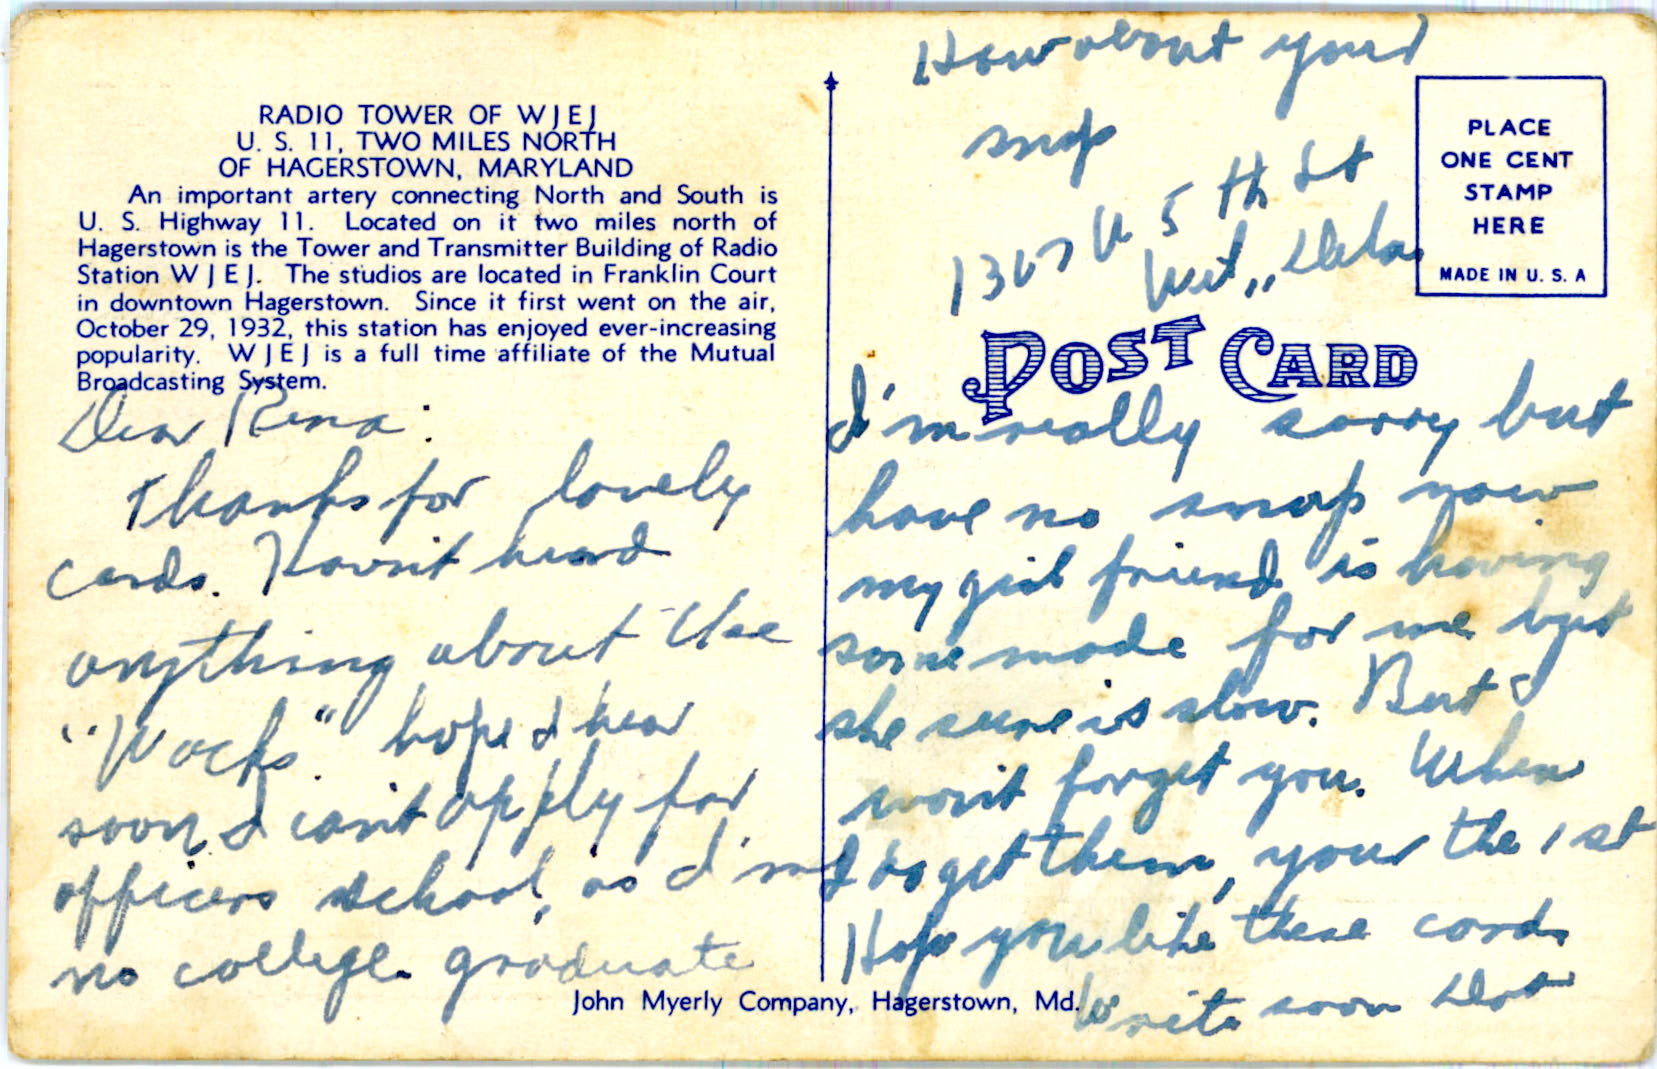 RADIO TOWER OF W J E J
U. S. 11, TWO MILES NORTH
OF HAGERSTOWN, MARYLAND
An important artery connecting North and South is
U. S. Highway 11. Located on it two miles north of
Hagerstown is the Tower and Transmitter Building of Radio
Station W J E J. The studios are located in Franklin Court
in downtown Hagerstown. Since it first went on the air,
October 29, 1932, this station has enjoyed ever-increasing
popularity. W J E J is a full time affiliate of the Mutual
Broadcasting System.
Dear Rena:
Thanks for lovely
cards. Havn't heard
anything about the
"Wacks" hope I hear
soon, I can't apply for
officers school, as I'm
no college graduate
How about your
snap
5th St
Del.
PLACE
ONE CENT
STAMP
HERE
MADE IN U. S. A
POST CARD
I'm really sorry but
have no snap now
my girl friend is having
some made for me but
she sure is slow. But I
won't forget you. When
I do get them, your the 1st
Hope you like these cards
Write soon Dot
John Myerly Company, Hagerstown, Md.